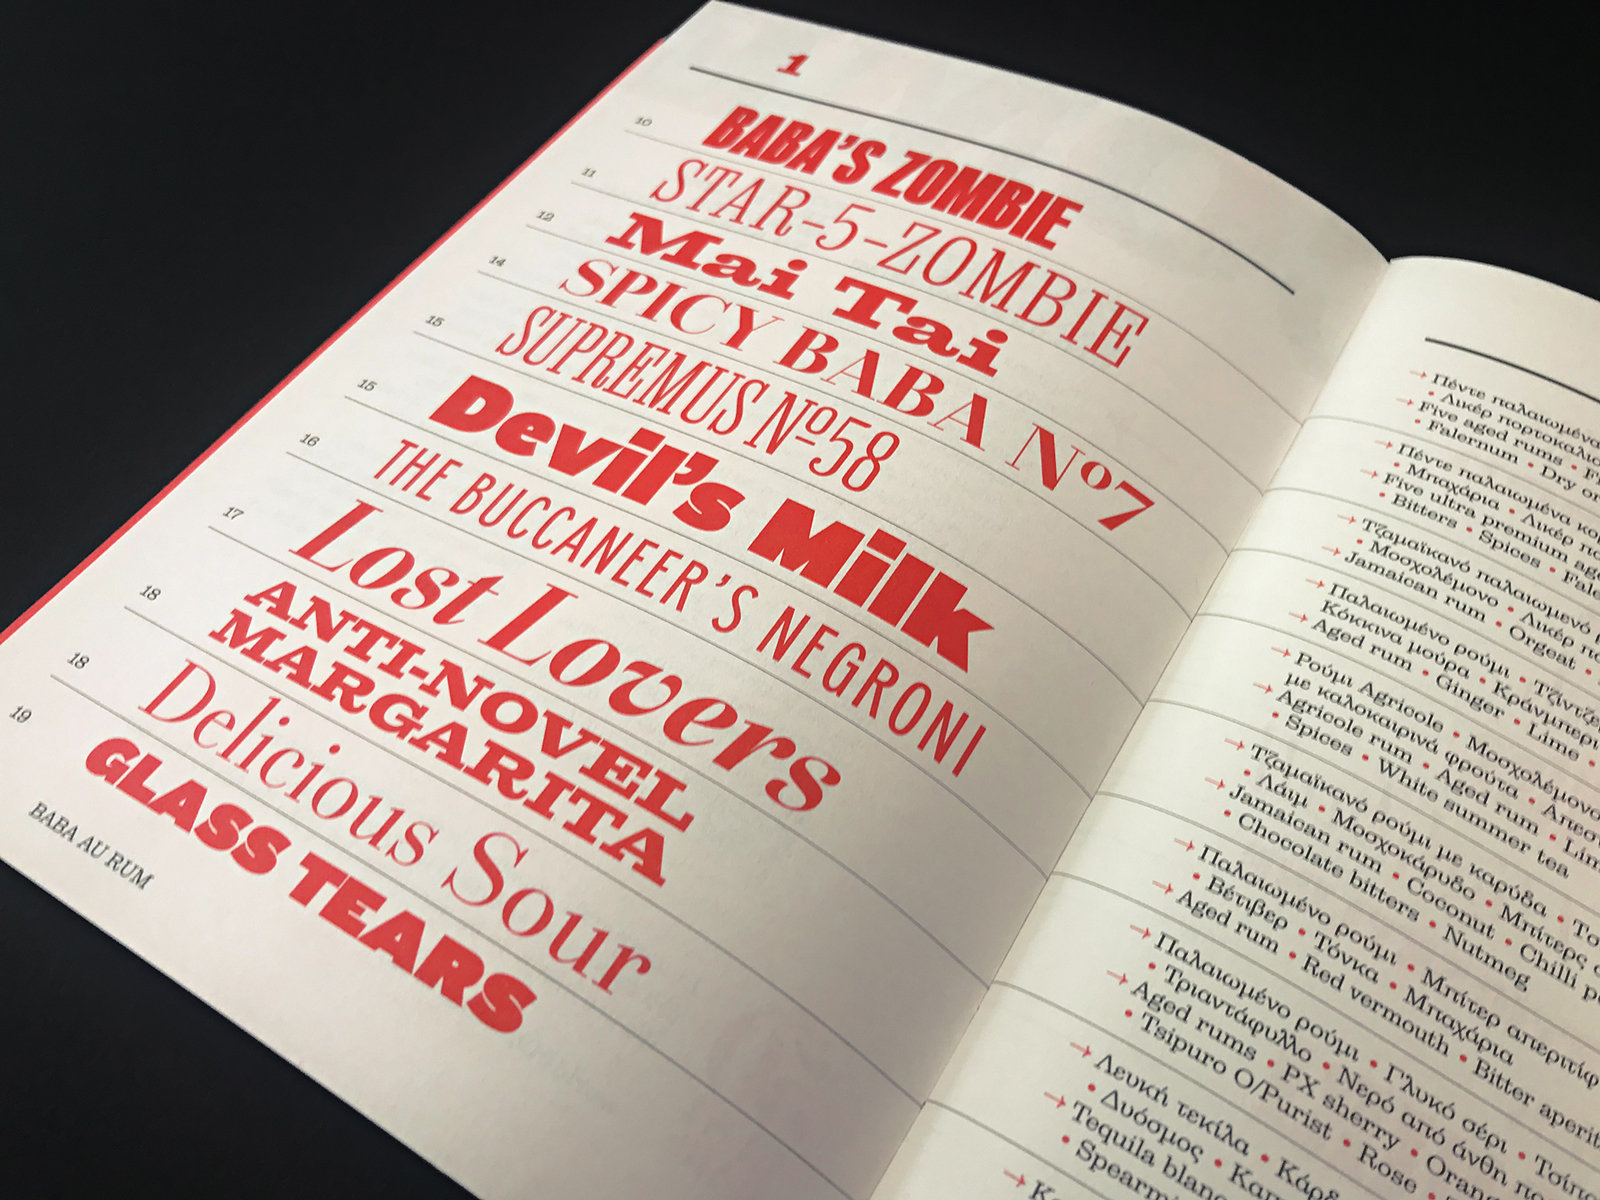 1
10 BABA'S ZOMBIE
11 STAR-5-ZOMBIE
12 Mai Tai
14 SPICY BABA Nº7
15 SUPREMUS Nº58
15 Devil's Milk
16 THE BUCCANEER'S NEGRONI
17 Lost Lovers
18 ANTI-NOVEL
MARGARITA
18 Delicious Sour
19 GLASS TEARS
BABA AU RUM
→ Πέντε παλαιωμένα
• Λικέρ πορτοκαλιο
→ Five aged rums •
Falernum • Dry
→ Πέντε παλαιωμένα
• Μπαχάρια • Λικέρ
→ Five ultra premium
• Bitters • Spices •
→ Τζαμαϊκανό παλαιωμένο
• Μοσχολέμονο • Λικέρ
→ Jamaican rum • Orgeat •
→ Παλαιωμένο ρούμι •
Κόκκινα μούρα •
→ Aged rum • Ginger • Lime •
→ Ρούμι Agricole •
με καλοκαιρινά φρούτα •
→ Agricole rum • Aged rum •
• Spices • White summer tea
→ Τζαμαϊκανό ρούμι με καρύδα •
• Λάιμ • Μοσχοκάρυδο • Μπίτερς
→ Jamaican rum • Coconut • Chilli
• Chocolate bitters • Nutmeg
→ Παλαιωμένο ρούμι • Μπίτερ
• Βέτιβερ • Τόνκα • Μπαχάρια
→ Aged rum • Red vermouth • Bitter
→ Παλαιωμένο ρούμι • Γλυκό σέρι •
• Τριαντάφυλλο • Νερό από άνθη
→ Aged rums • PX sherry •
• Tsipuro O/Purist • Rose •
→ Λευκή τεκίλα •
• Δυόσμος •
→ Tequila
•
→